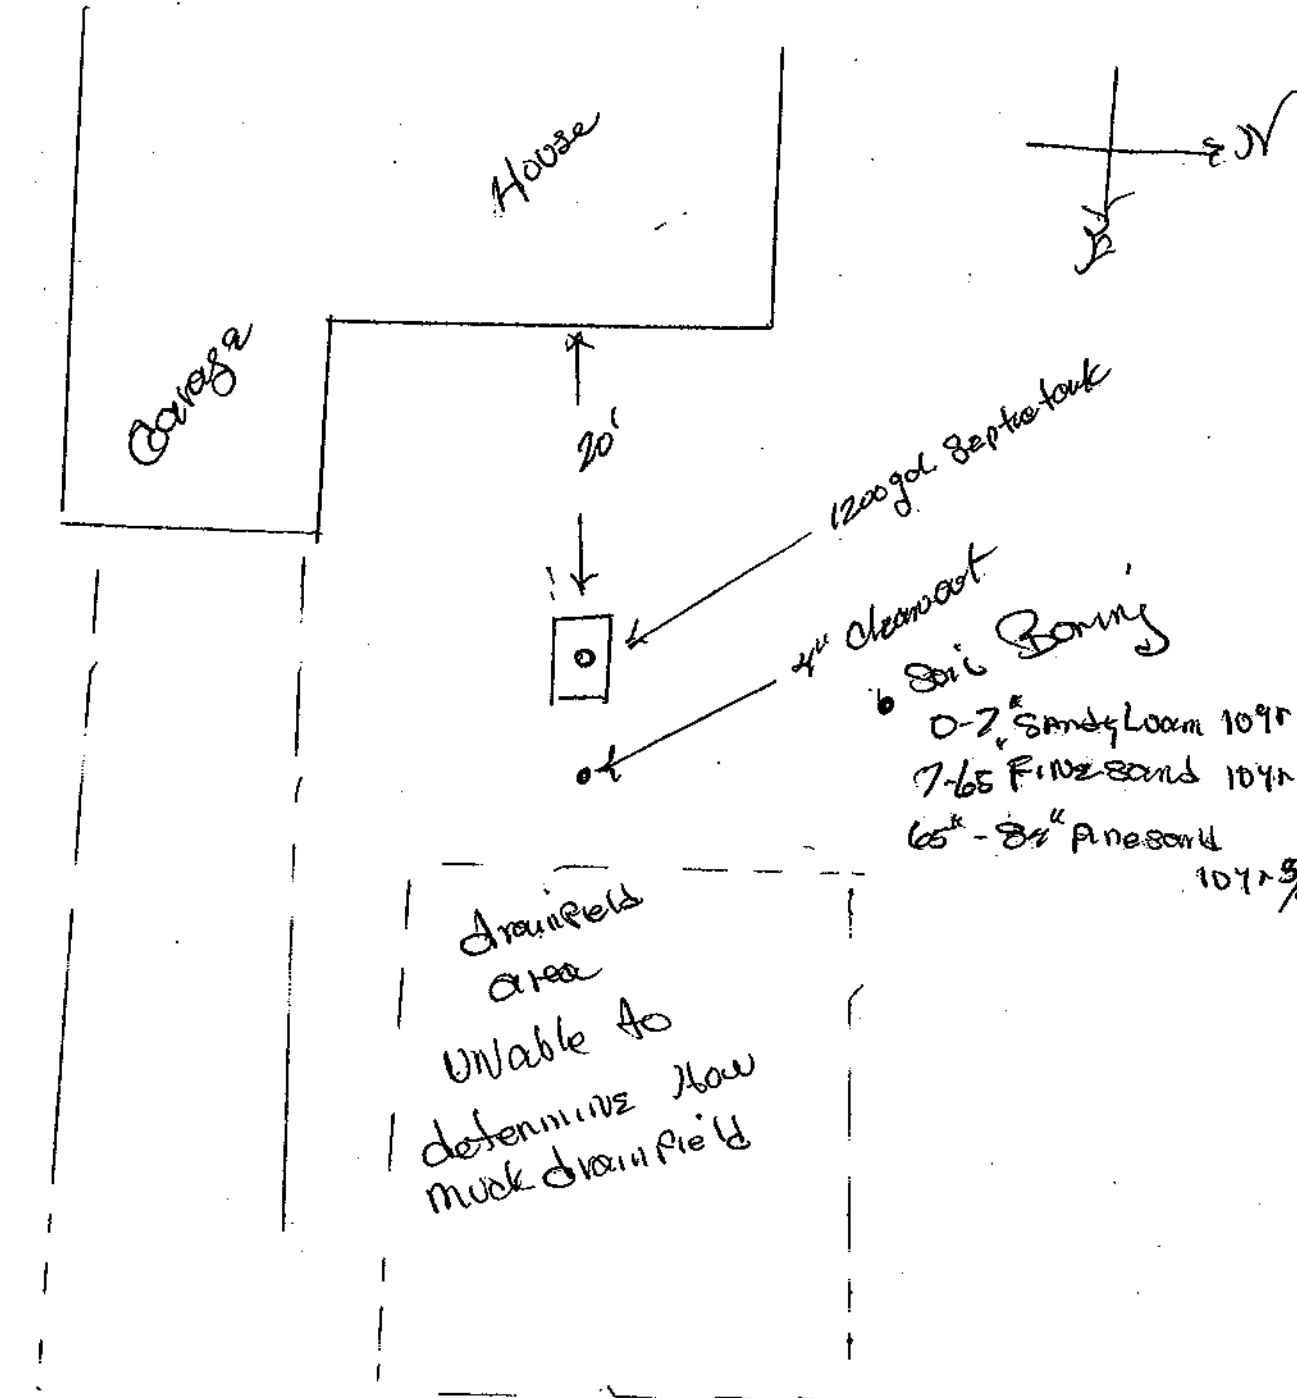 House
N
E
Garage
20'
1200 gal. Septic tank
4" Cleanout
Soil Boring
0-7" Sandy Loam 10yr
7-65" Fine sand 10yr
65"-84" Fine sand
10yr
drainfield
area
UNable to
determine How
much drainfield